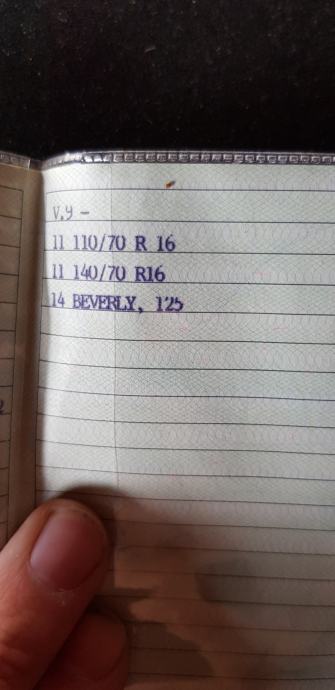 V.9 -
11 110/70 R 16
11 140/70 R16
14 BEVERLY, 125